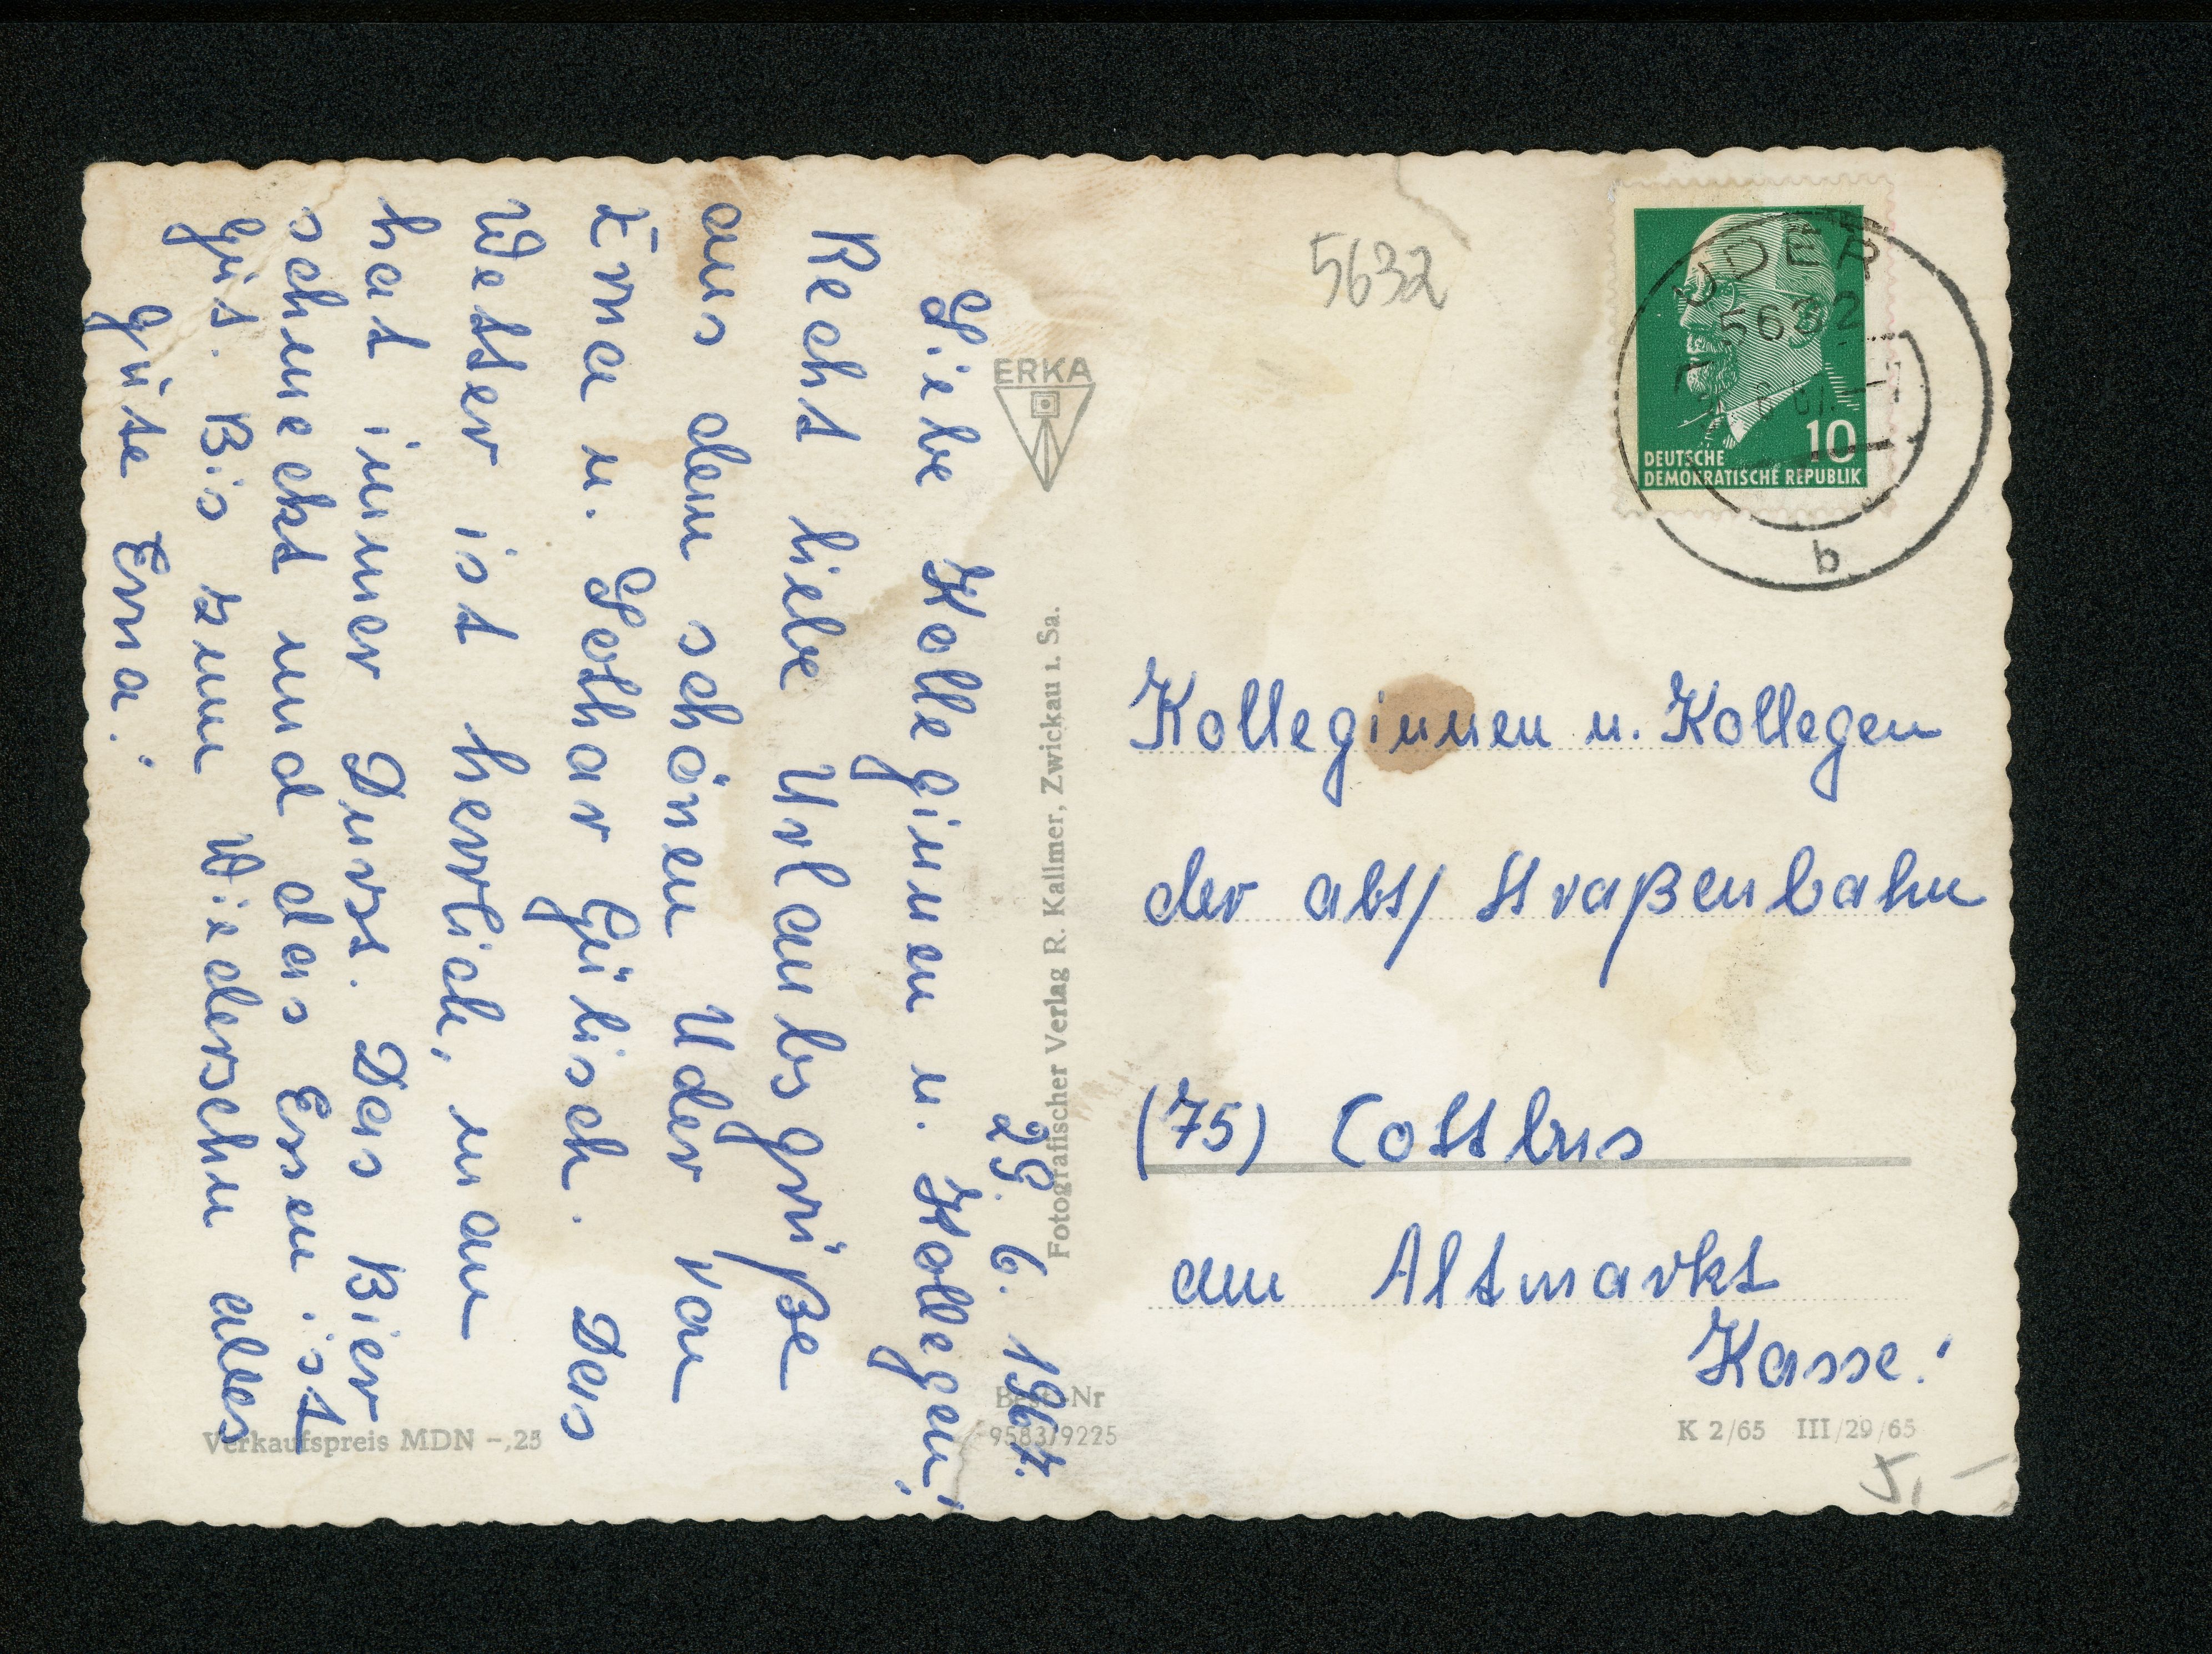 29. 6. 1967.
Liebe Kolleginnen u. Kollegen!
Recht liebe Urlaubsgrüße
aus dem schönen Uder von
Erna u. Lothar Gülisch. Das
Wetter ist herrlich, man
hat immer Durst. Das Bier
schmeckt und das Essen ist
gut. Bis zum Wiedersehn alles
gute Erna!
ERKA
Fotografischer Verlag R. Kallmer, Zwickau i. Sa.
Best.-Nr
9583/9225
Verkaufspreis MDN -,25
5632
UDER
5632
b
10
DEUTSCHE
DEMOKRATISCHE REPUBLIK
Kolleginnen u. Kollegen
der abt/ Straßenbahn
(75) Cottbus
am Altmarkt
Kasse!
K 2/65 III/29/65
5,-